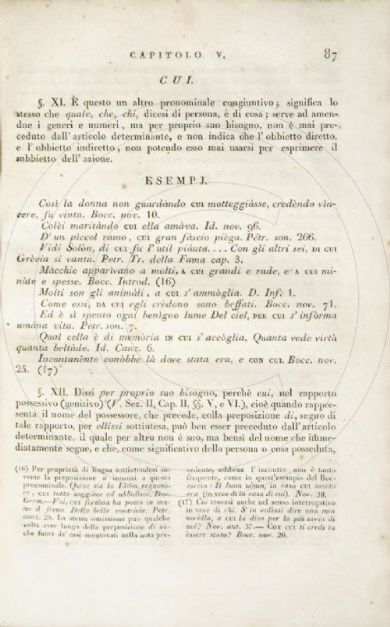 CAPITOLO V. 87
CUI.
§. XI. È questo un altro pronominale congiuntivo; significa lo
stesso che quale, che, chi, dicesi di persona, è di cosa; serve ad amen-
due i generi e numeri, ma per proprio suo bisogno, non è mai pre-
ceduto dall'articolo determinante, e non indica che l'obbietto diretto,
e l'obbietto indiretto; non potendo esso mai usarsi per esprimere il
subbietto dell'azione.
ESEMPJ.
Così la donna non guardàndo CUI motteggiàsse, credèndo vin-
cere, fu vinta. Bocc. nov. 10.
Colèi maritàndo CUI ella amàva. Id. nov. 96.
D'un pìccol ramo, CUI gran fàscio pièga. Petr. son. 266.
Vidi Solòn, di CUI fu l'util piànta.... Con gli altri sei, DI CUI
Grècia si vanta. Petr. Tr. della Fama cap. 3.
Màcchie apparìvano a molti, A CUI grandi e rade, e A CUI mi-
nùte e spesse. Bocc. Introd. (16)
Molti son gli animàli, a CUI s'ammòglia. D. Inf. 1.
Come essi, DA CUI egli crèdono sono beffati. Bocc. nov. 71.
Ed è sì spento ogni benìgno lume Del ciel, PER CUI s'informa
umàna vita. Petr. son. 7.
Qual cella è di memòria IN CUI s'accòglia. Quanta vede virtù
quanta beltàde. Id. Canz. 6.
Incontanènte conòbbe là dove stata era, e CON CUI. Bocc. nov.
25. (17)
§. XII. Dissi per proprio suo bisogno, perchè cui, nel rapporto
possessivo (genitivo) (V. Sez. II, Cap. II, §§. V, e VI.), cioè quando rappre-
senta il nome del possessore, che precede, colla preposizione di, segno di
tale rapporto, per ellissi sottintesa, può ben esser preceduto dall'articolo
determinante, il quale per altro non è suo, ma bensì del nome che imme-
diatamente segue, e che, come significativo della persona o cosa posseduta,
(16) Per proprietà di lingua sottintendesi so-
vente la preposizione a innanzi a questo
pronominale.
cui tutto soggiace ed ubbidisce. Boc.
cui fortuna ha posto in ma-
no il freno Delle belle contràde. Petr.
canz. 29. La stessa omissione può qualche
volta aver luogo della preposizione di an-
che fuori de' casi mentovati nella nota pre-
cedente, sebbene l'incontro non è tanto
frequente, come in quest'esempio del Boc-
caccio: Il buon uòmo, in casa CUI morto
era (in vece di in casa di cui). Nov. 38.
(17) Cui trovasi anche nel senso interrogativo
in vece di chi. S'io volessi dire una mia
novella, a CUI la dico per lo più savio di
noi? Nov. ant. 37.— CON CUI ti credi tu
èssere stata? Bocc. nov. 26.